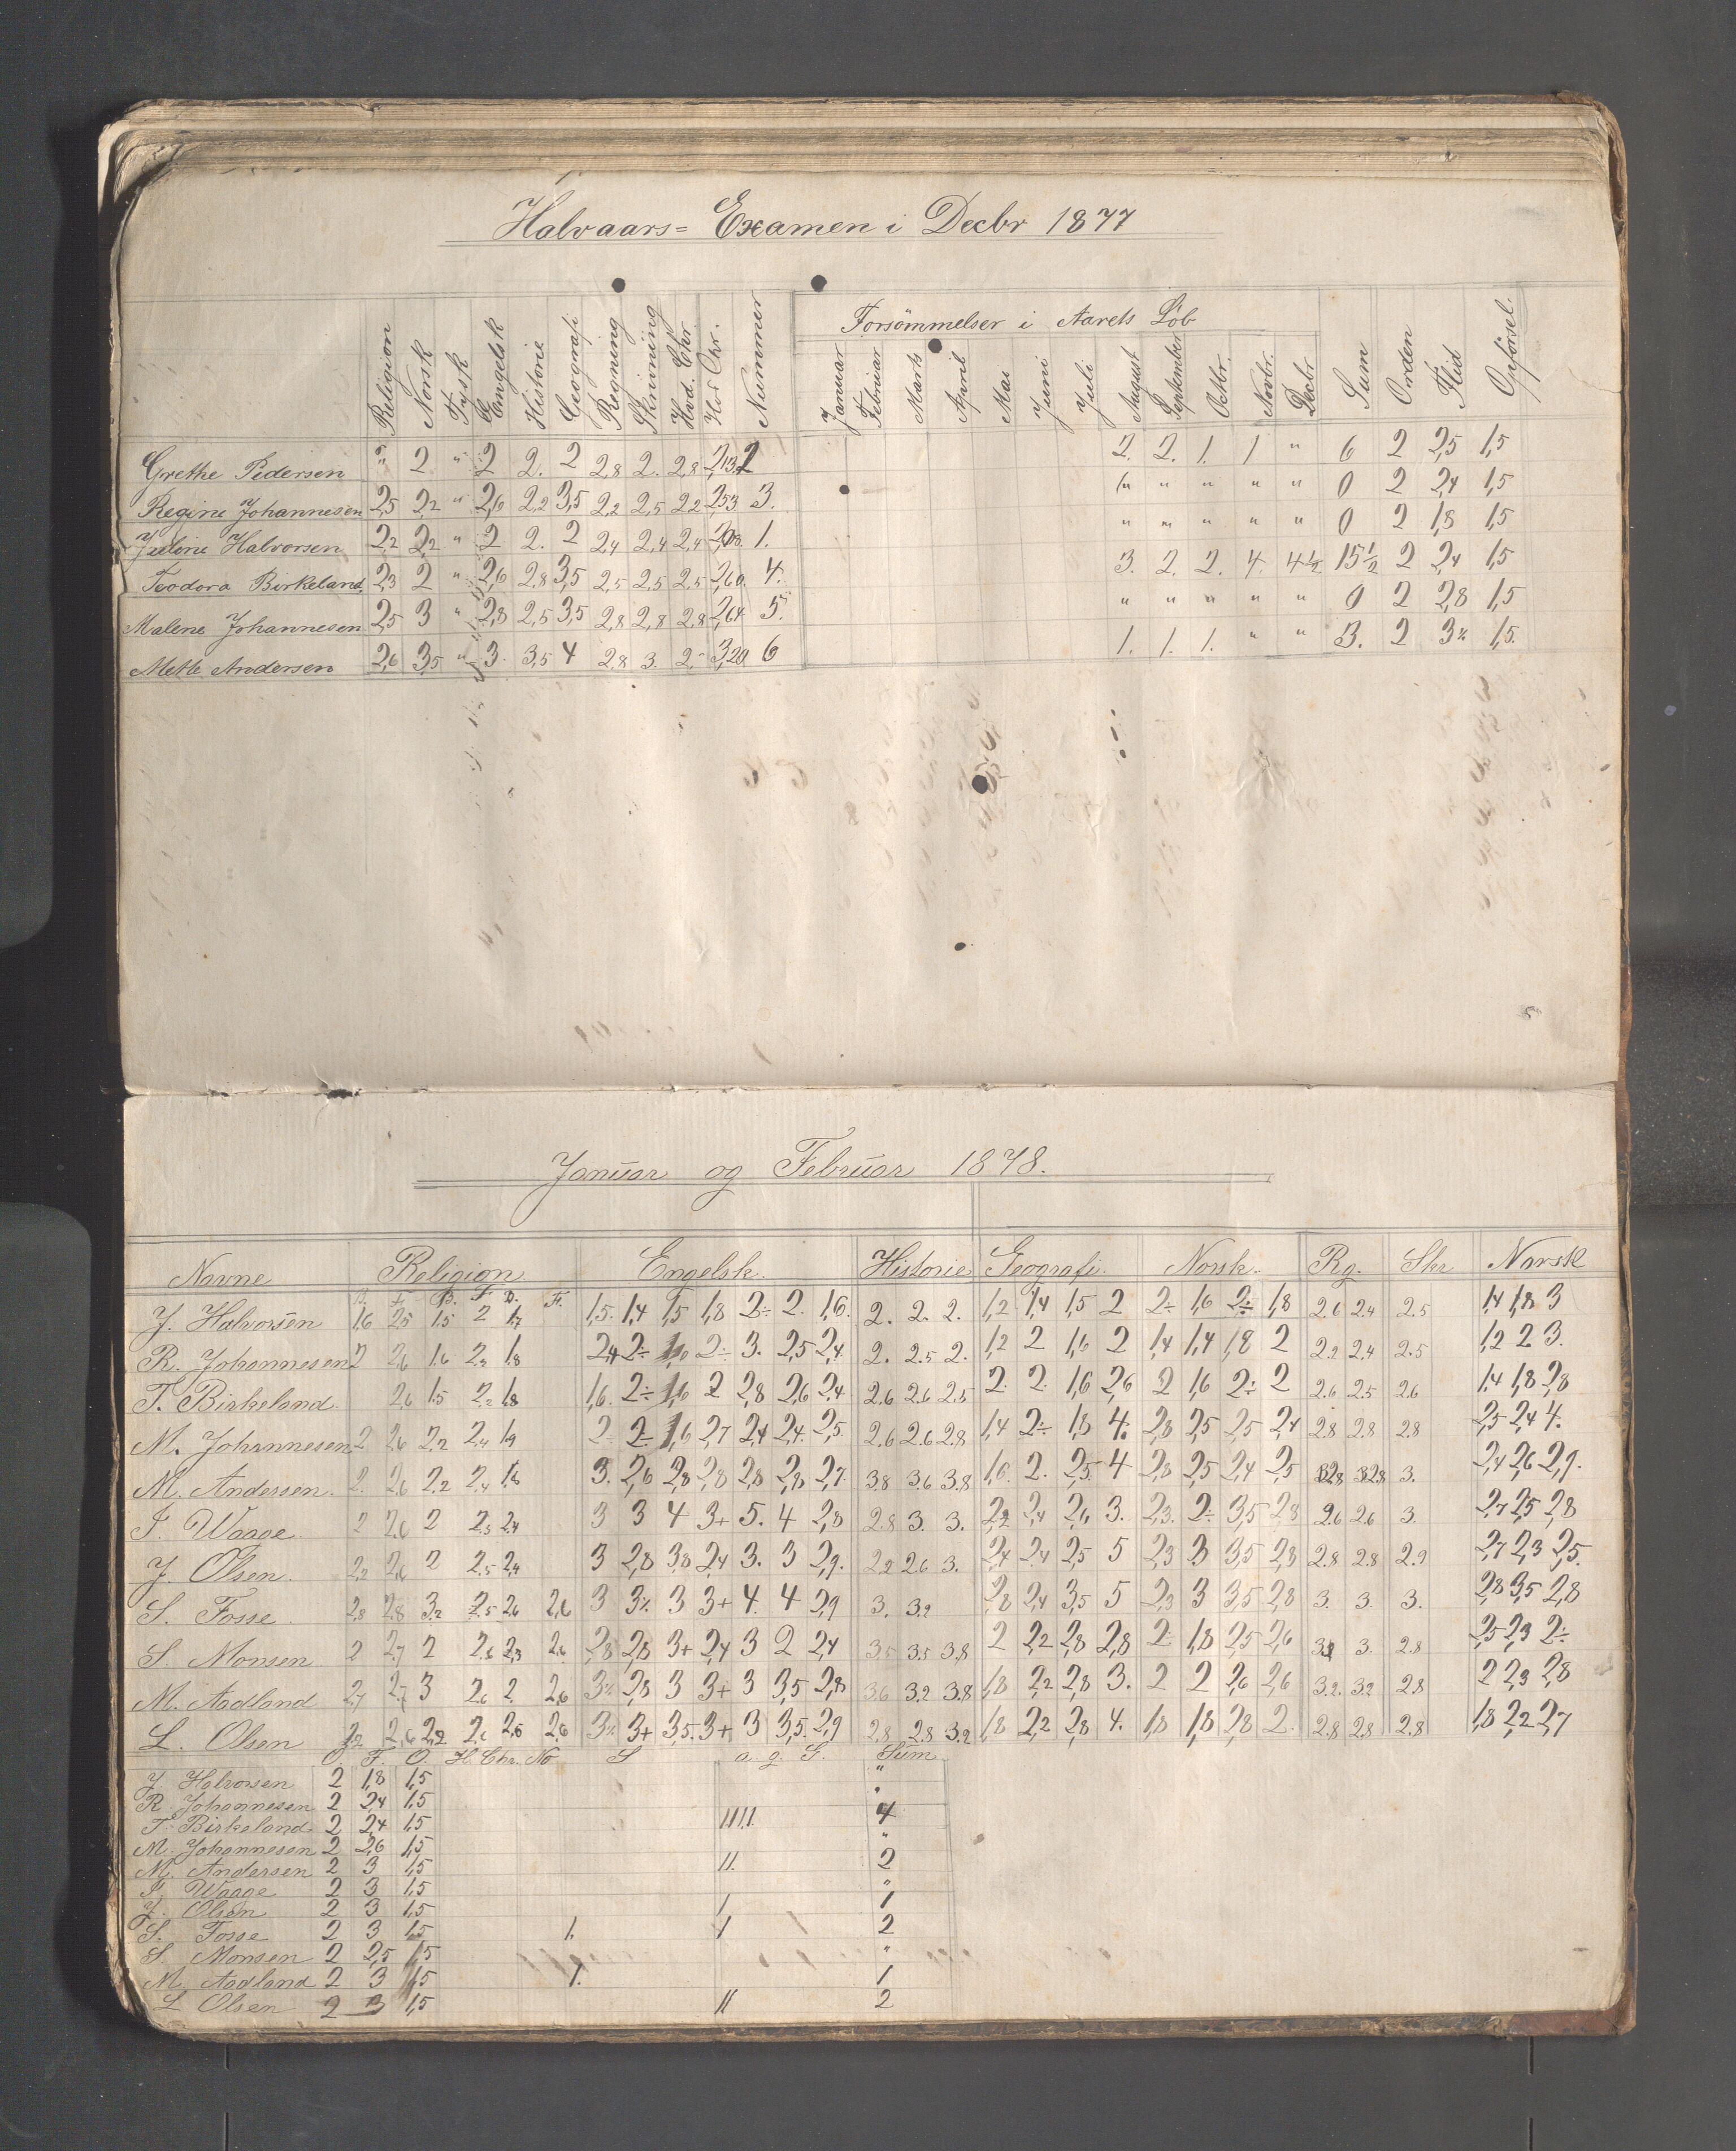 Halvaars= Examen i Decbr 1877
Religion Norsk Tysk Engelsk Historie Geografi Regning Skrivning Hvd. Chr. Nummer Forsömmelser i Aarets Löb Januar Februar Marts April Mai Juni Juli August September Octbr. Novbr. Decbr Sum Orden Flid Opførsel
Grethe Pedersen " 2 " 2 2. 2 2,8 2. 2,8 2,13 2 2. 2. 1. 1 " 6 2 2,5 1,5
Regine Johannesen 2,5 2,2 " 2,6 2,2 3,5 2,2 2,5 2,2 2,53 3. " " " " " 0 2 2,4 1,5
Juline Halvorsen 2,2 2,2 " 2 2. 2 2,4 2,4 2,4 1. " " " " " 0 2 1,8 1,5
Teodora Birkeland. 2,3 2 " 2,6 2,8 3,5 2,5 2,5 2,5 2,60. 4. 3. 2. 2. 4. 4½ 15½ 2 2,4 1,5
Malene Johannesen 2,5 3 " 2,8 2,5 3,5 2,8 2,8 2,8 2,64 5. " " " " " 0 2 2,8 1,5
Mette Andersen 2,6 3,5 " 3. 3,5 4 2,8 3. 2,- 3,20 6 1. 1. 1. " " 3. 2 3% 1,5.
Januar og Februar 1878.
Navne Religion Engelsk. Historie Geografi. Norsk. Rg. Skr Norsk
B. F. B. F. D. F.
J. Halvorsen 1,6 2,5 1,5 2 1,7 1,5. 1,4 1,5 1,8 2÷ 2. 1,6. 2. 2. 2. 1,2 1,4 1,5 2 2÷ 1,6 2÷ 1,8 2.6 2.4 2.5 1,4 1,8 3
R. Johannesen 2 2,6 1.6 2,2 1,8 2,4 2÷ 1,6 2÷ 3. 2,5 2,4. 2. 2.5 2. 1,2 2 1,6 2 1,4 1,4 1,8 2 2.2 2.4 2.5 1,2 2 3.
T. Birkeland. 2,6 1.5 2,2 1,8 1,6. 2÷ 1,6 2 2,8 2,6 2,4 2.6 2.6 2.5 2. 2. 1,6 2,6 2 1,6 2÷ 2 2.6 2.5 2.6 1,4 1,8 2,8
M. Johannesen 2 2,6 2,2 2,4 1,9 2÷ 2÷ 1,6 2,7 2,4 2,4. 2,5. 2.6 2.6 2.8 1,4 2÷ 1,8 4. 2,8 2,5 2,5 2,4 2.8 2.8 2.8 2,5 2,4 4.
M. Andersen. 2. 2,6 2,2 2,4 1,8 3. 2,6 2,8 2,8 2,8 2,8 2,7. 3.8 3.6 3.8 1,6. 2. 2,5. 4 2,8 2,5 2,4 2,5 2.8 2.8 3. 2,4 2,6 2,9.
J. Waage 2 2,6 2 2,3 2,4 3 3 4 3+ 5. 4 2,8 2.8 3. 3. 2,2 2,4 2,6 3. 2,3. 2÷ 3,5 2,8 2.6 2.6 3. 2,7 2,5 2,8
J. Olsen. 2,2 2,6 2 2,5 2,4 3 2,8 3,8 2,4 3. 3 2,9. 2.2 2.6 3. 2,4 2,4 2,5 5 2,3 3 3,5 2,8 2.8 2.8 2.9 2,7 2,3 2,5.
S. Fosse. 2,8 2,8 3,2 2,5 2,6 2,6 3 3% 3 3+ 4. 4 2,9 3. 3.2 2,8 2,4 3,5 5 2,3 3 3,5 2,8 3. 3. 3. 2,8 3,5 2,8
S. Monsen 2 2,7 2 2,6 2,3 2,6 2,8 2,8 3+ 2,4 3 2 2,4 3.5 3.5 3.8 2 2,2 2,8 2,8 2÷ 1,8 2,5 2,6 3. 2.8 2,5 2,3 2÷
M. Aadland 2,7 2,7 3 2,6 2. 2,6 3% 2,8 3 3+ 3 3,5 2,8 3.6 3.2 3.8 1,8 2,2 2,8 3. 2 2 2,6 2,6 3.2. 3.2 2.8 2 2,3 2,8
L. Olsen 2,6 2,2 2,6 2,6 2,6 3% 3+ 3,5. 3+ 3 3,5. 2,9 2.8 2.8 3.2 1,8 2,2 2,8 4. 1,8 1,8 2,8 2. 2.8 2.8 2.8 1,8 2,2 2,7
O. F. O. H. Chr. No S a. g. F. Sum
J. Halvorsen 2 1,8 1,5 "
R. Johannesen 2 2,4 1,5 "
T. Birkeland. 2 2,4 1,5 1111. 4
M. Johannesen 2 2,6 1,5 "
M. Andersen 2 3 1,5 11. 2
J. Waage 2 3 1,5 "
J. Olsen 2 3 1,5 1 1
S. Fosse 2 3 1,5 1. 1 2
S. Monsen 2 2,5 1,5 "
M. Aadland 2 3 1,5 1. 1
L Olsen 2 3 1,5 11 2